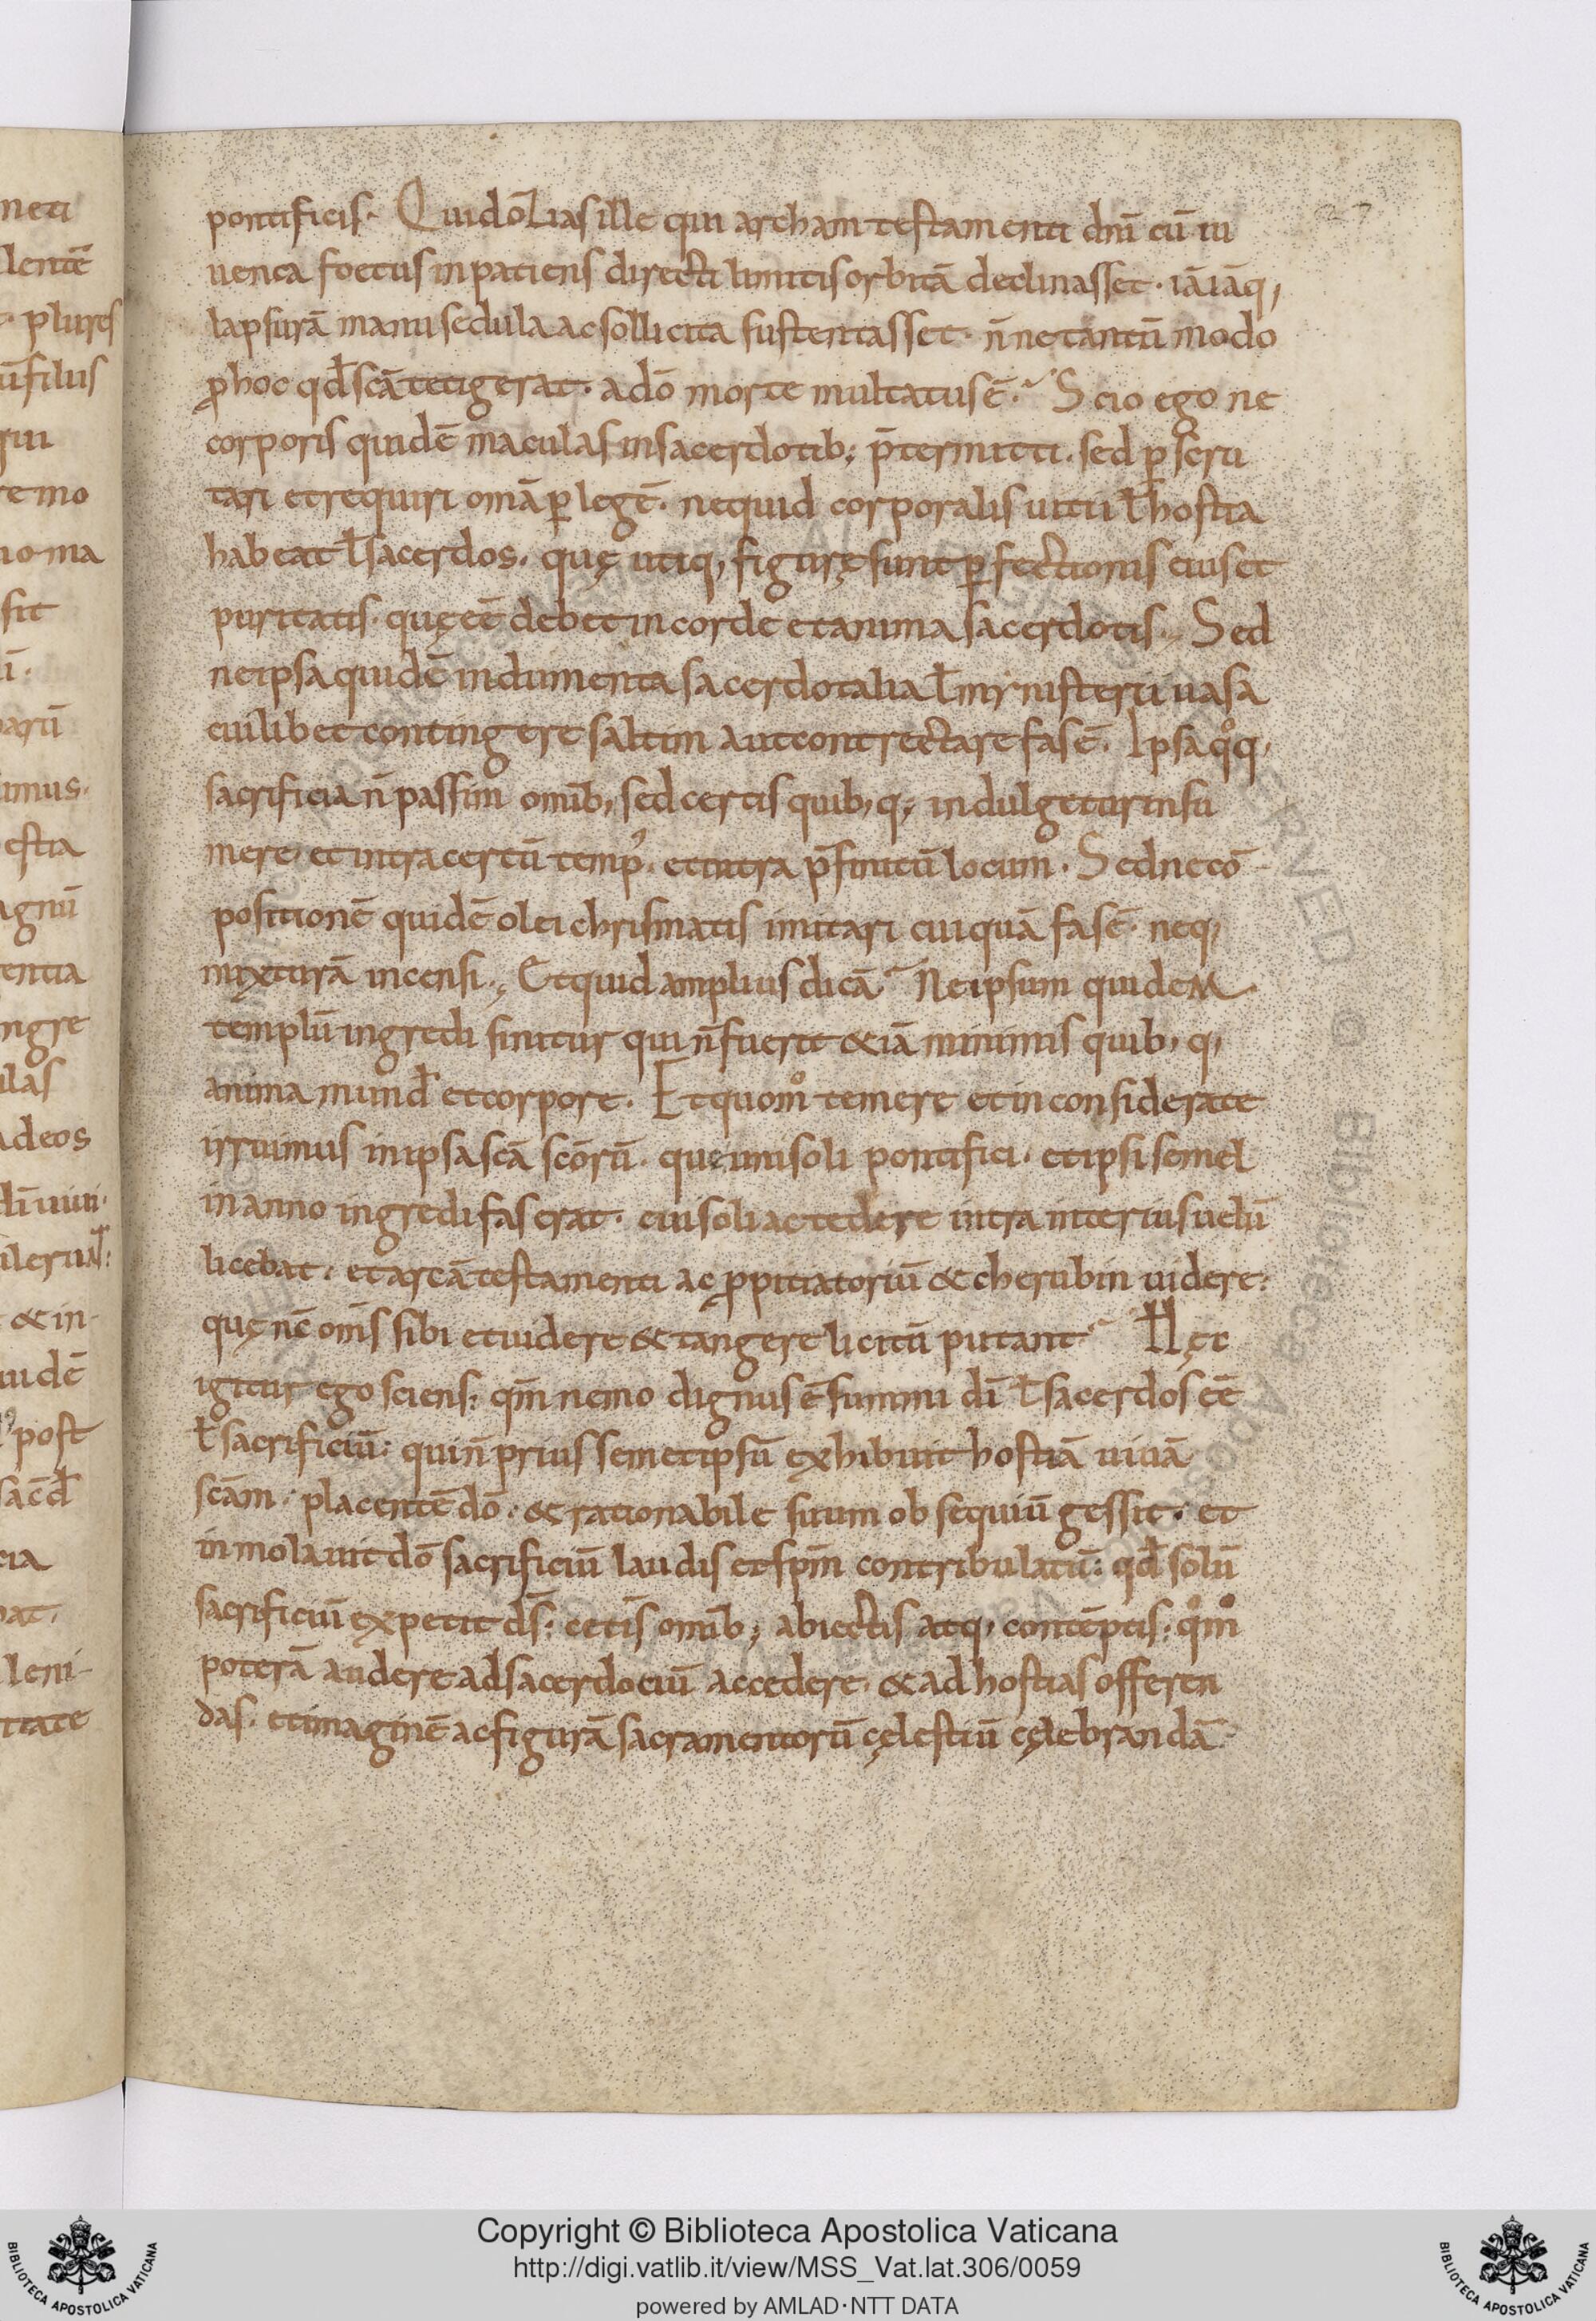 pontificis. Quid oƶias ille qui archam testamenti dn̄i cū iu
uenca foetus inpatiens directi limitis orbitā declinasset. iā iāq;
lapsurā manu sedula ac sollicita sustentasset. n̄ne tantū modo
ꝓ hoc qd̄ scā tetigerat. a dō morte multatus ē. Scio ego ne
corporis quidē maculas in sacerdotib; p̄termitti. sed ꝑscru
tari et requiri omā ꝑ legē. nequid corporalis uitii ł hostia
habeat ł sacerdos. quę utiq; figurę sunt ꝑfectionis eius et
puritatis. quę eē debet in corde et anima sacerdotis. Sed
ne ipsa quidē indumenta sacerdotalia ł mynisterii uasa
cuilibet contingere saltim aut contrectare fas ē. Ipsa qͦq;
sacrificia n̄ passim omīb; sed certis quib; q; indulgetur insu
mere. et intra certū temp᾿. et intra p̄finitū locum. Sed ne cō
positionē quidē olei chrismatis imitari cuiquā fas ē. neq;
mixturā incensi. Et quid amplius dicā Ne ipsum quidem
templū ingredi sinitur qui n̄ fuerit &iā minimis quib; q;
anima mund̄ et corpore. Et quomͦ temere et inconsiderate
irruimus in ipsa scā scōrū. que uni soli pontifici. et ipsi semel
in anno ingredi fas erat. cui soli accedere intra interius uelū
licebat. et arcā testamenti ac ꝓpitiatoriū & cherubin uidere:
quę nc̄ om̄s sibi et uidere & tangere licitū putant Hęc
igitur ego sciens: qm̄ nemo dignus ē summi dī ł sacerdos eē
ł sacrificiū: qui n̄ prius semetipsū exhibuit hostiā uiuā
scām. placentē dō. & rationabile suum obsequiū gessit. et
inmolauit dō sacrificiū laudis et spm̄ contribulatū: qd̄ solū
sacrificiū expetit ds̄: cetīs omīb; abiectis atq; contēptis. qͦmͦ
poterā audere ad sacerdociū accedere. & ad hostias offeren
das. et imaginē ac figurā sacramentorū cęlestiū cęlebrandā
neti
lentē
plures
ūfilius
qui
sit
arū
imus.
estia
agnū
entia
ingre
ulas
adeos
& in
uidē
post
sacd̄
leni
Copyright © Biblioteca Apostolica Vaticana
http://digi.vatlib.it/view/MSS_Vat.lat.306/0059
powered by AMLAD·NTT DATA
BIBLIOTECA APOSTOLICA VATICANA
BIBLIOTECA APOSTOLICA VATICANA